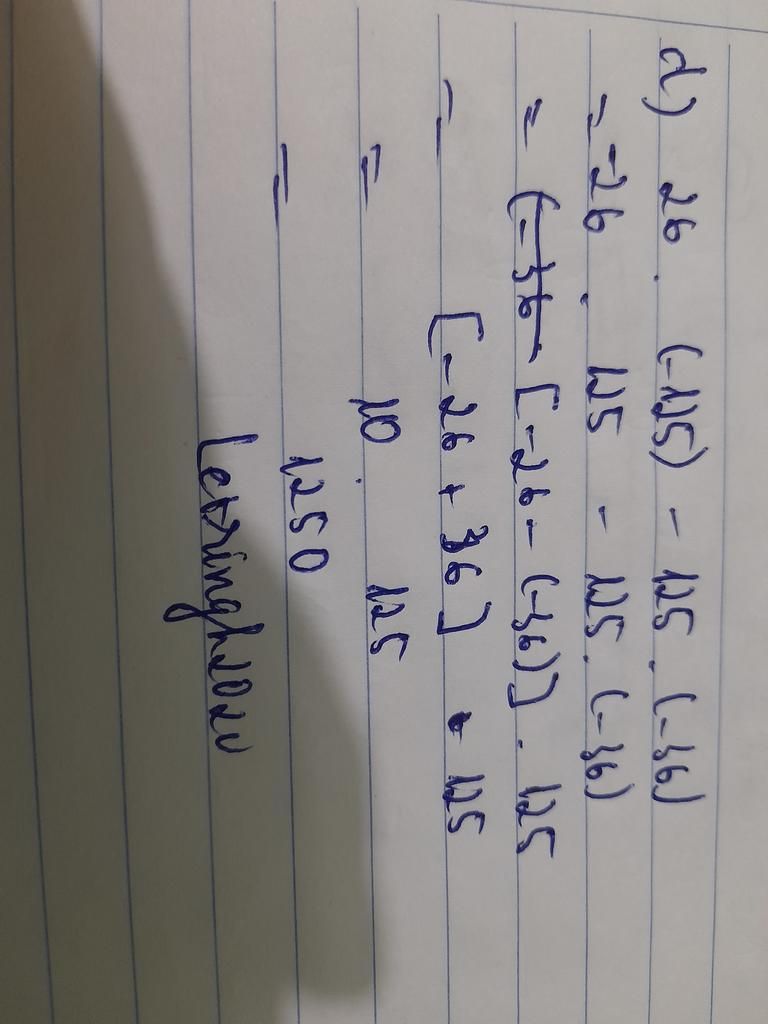 d) 26 . (-125) - 125 . (-36)
= -26 . 125 - 125 . (-36)
= (-36 [-26 - (-36)] . 125
= [-26 + 36] . 125
= 10 . 125
= 1250
Letringh2020